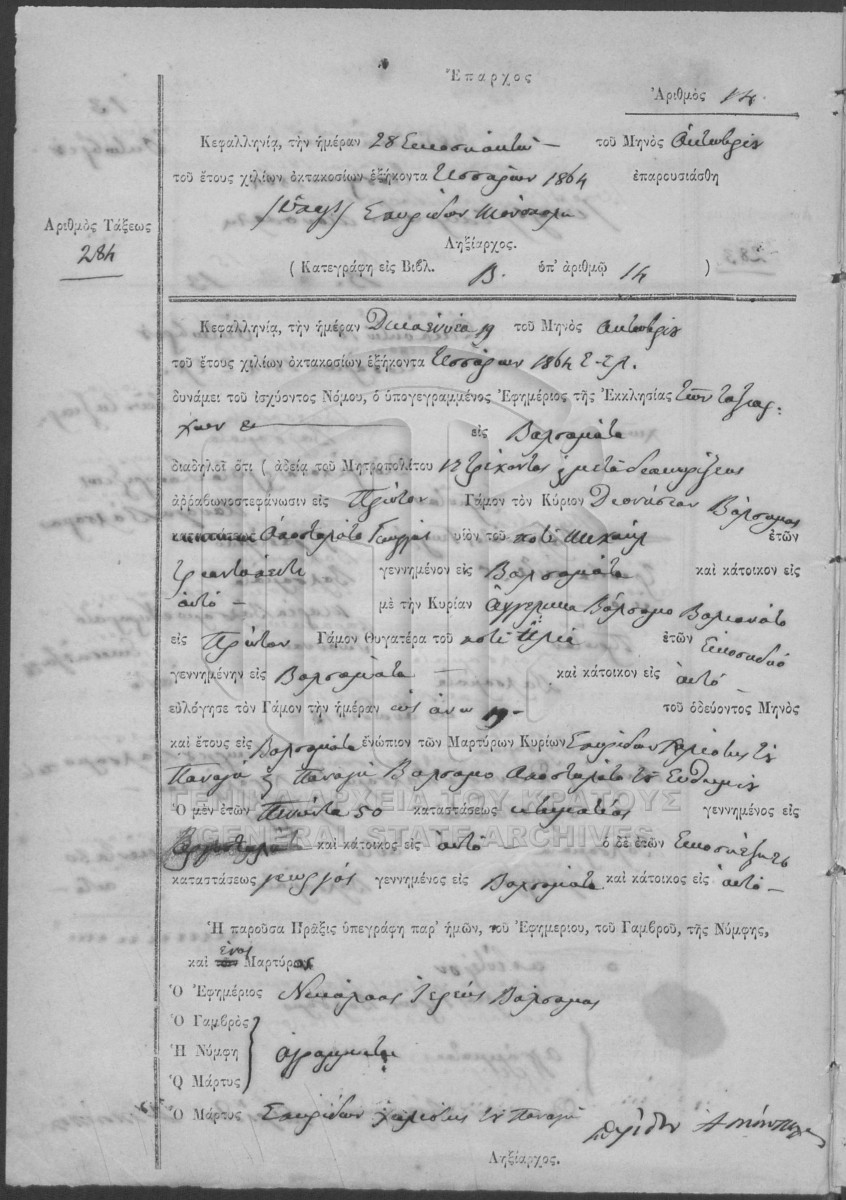 Ἔπαρχος
Ἀριθμὸς 14.
Κεφαλληνίᾳ, τὴν ἡμέραν 28 Εικοσιοκτώ — τοῦ Μηνὸς Οκτωβρίου
τοῦ ἔτους χιλίων ὀκτακοσίων ἑξήκοντα τεσσάρων 1864 ἐπαρουσιάσθη
Σπυρίδων
Ληξίαρχος.
Ἀριθμὸς Τάξεως
284
( Κατεγράφη εἰς Βιβλ. Β. ὑπ' ἀριθμῷ 14 )
Κεφαλληνίᾳ, τὴν ἡμέραν Δεκαεννέα 19 τοῦ Μηνὸς Οκτωβρίου
τοῦ ἔτους χιλίων ὀκτακοσίων ἑξήκοντα τεσσάρων 1864
δυνάμει τοῦ ἰσχύοντος Νόμου, ὁ ὑπογεγραμμένος Ἐφημέριος τῆς Ἐκκλησίας των Ταξιαρ-
χων εἰς Βαλσαμάτα
διαδηλοῖ ὅτι ( ἀδείᾳ τοῦ Μητροπολίτου 12 τρέχοντος
ἀρραβωνοστεφάνωσιν εἰς Πρώτον Γάμον τὸν Κύριον Διονύσιον Βάλσαμος
Αποστολάτο Γεωργός υἱὸν τοῦ ποτέ Μιχαήλ ἐτῶν
τριανταπέντε γεννημένον εἰς Βαλσαμάτα καὶ κάτοικον εἰς
αυτό — μὲ τὴν Κυρίαν Αγγελικα Βάλσαμο
εἰς Πρώτον Γάμον Θυγατέρα τοῦ ποτέ Ηλία ἐτῶν Εικοσιδύο
γεννημένην εἰς Βαλσαμάτα — καὶ κάτοικον εἰς αυτό —
εὐλόγησε τὸν Γάμον τὴν ἡμέραν ως άνω 19 — τοῦ ὁδεύοντος Μηνὸς
καὶ ἔτους εἰς Βαλσαμάτα ἐνώπιον τῶν Μαρτύρων Κυρίων Σπυρίδων Χαλιότης του
Παναγή & Παναγή Βάλσαμο Αποστολάτο του Ευθυμίου
Ὁ μὲν ἐτῶν Πενήντα 50 καταστάσεως κτηματίας γεννημένος εἰς
καὶ κάτοικος εἰς αυτό — ὁ δὲ ἐτῶν Εικοσιέξ
καταστάσεως γεωργός γεννημένος εἰς Βαλσαμάτα καὶ κάτοικος εἰς αυτό —
Ἡ παροῦσα Πρᾶξις ὑπεγράφη παρ' ἡμῶν, τοῦ Ἐφημερίου, τοῦ Γαμβροῦ, τῆς Νύμφης,
καὶ ἑνός Μάρτυρος
Ὁ Ἐφημέριος Νικόλαος Ιερεύς Βάλσαμος
Ὁ Γαμβρὸς
Ἡ Νύμφη αγράμματοι
Ὁ Μάρτυς
Ὁ Μάρτυς Σπυρίδων Χαλιότης του Παναγή
Ληξίαρχος.
ΓΕΝΙΚΑ ΑΡΧΕΙΑ ΤΟΥ ΚΡΑΤΟΥΣ
GENERAL STATE ARCHIVES